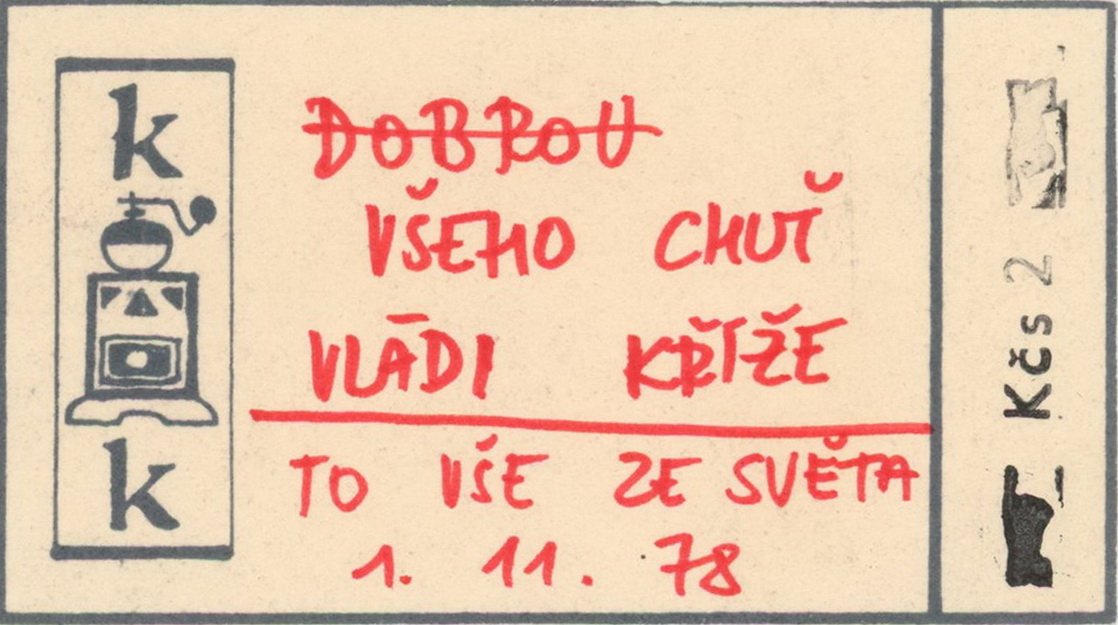 k
k
DOBROU
VŠEHO CHUŤ
VLÁDI KŘÍŽE
TO VŠE ZE SVĚTA
1. 11. 78
Kčs 2